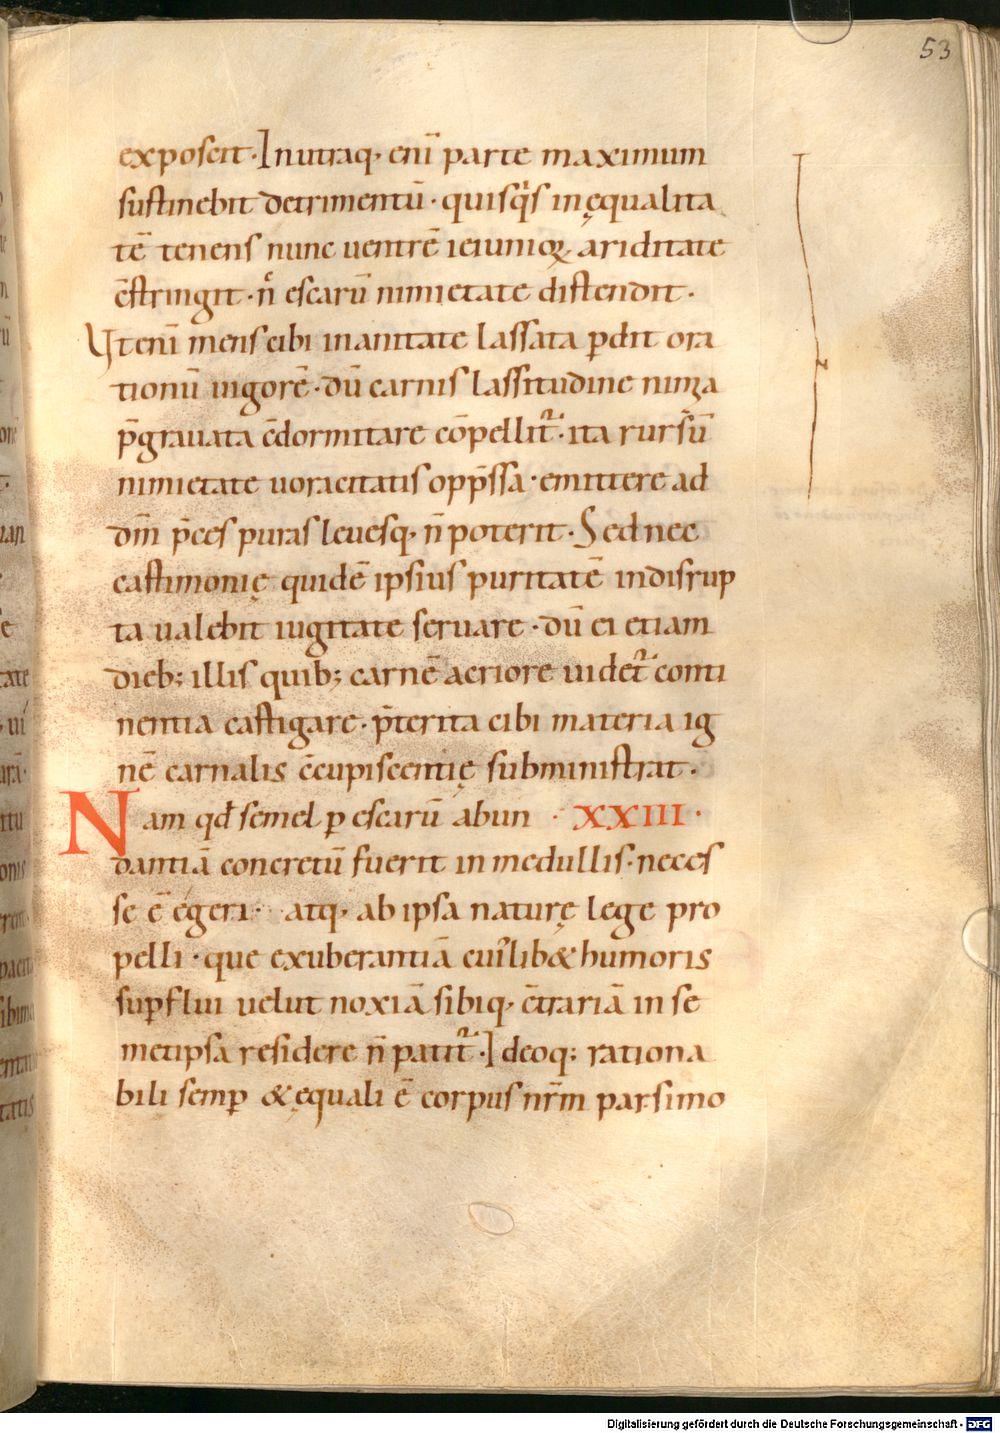 53
exposcit. In utraq; eni̅ parte maximum
sustinebit detrimentu̅. quisq̍s inęqualita
te̅ tenens nunc uentre̅ ieiuniorꝝ ariditate
c̅stringit. n̅ escaru̅ nimietate distendit.
Ut eni̅ mens cibi inanitate lassata ꝑdit ora
tionu̅ uigore̅. du̅ carnis lassitudine nimia
p̅grauata c̅dormitare co̅pellit᷑. ita rursu̅
nimietate uoracitatis opp̅ssa. emittere ad
dm̅ p̅ces puras leuesq; n̅ poterit. Sed nec
castimonię quide̅ ipsius puritate̅ indisrup
ta ualebit iugitate seruare. du̅ ei etiam
dieb; illis quib; carne̅ acriore uidet᷑ conti
nentia castigare. p̅terita cibi materia ig
ne̅ carnalis c̅cupiscentię subministrat.
Nam qd̅ semel ꝑ escaru̅ abun · XXIII ·
dantia̅ concretu̅ fuerit in medullis. neces
se e̅ egeri. atq; ab ipsa naturę lege pro
pelli. que exuberantia̅ cui̍lib& humoris
suꝑflui uelut noxia̅ sibiq; c̅traria̅ in se
metipsa residere n̅ patit᷑. Ideoq; rationa
bili semꝑ & ęquali e̅ corpus nr̅m parsimo
Digitalisierung gefördert durch die Deutsche Forschungsgemeinschaft - DFG